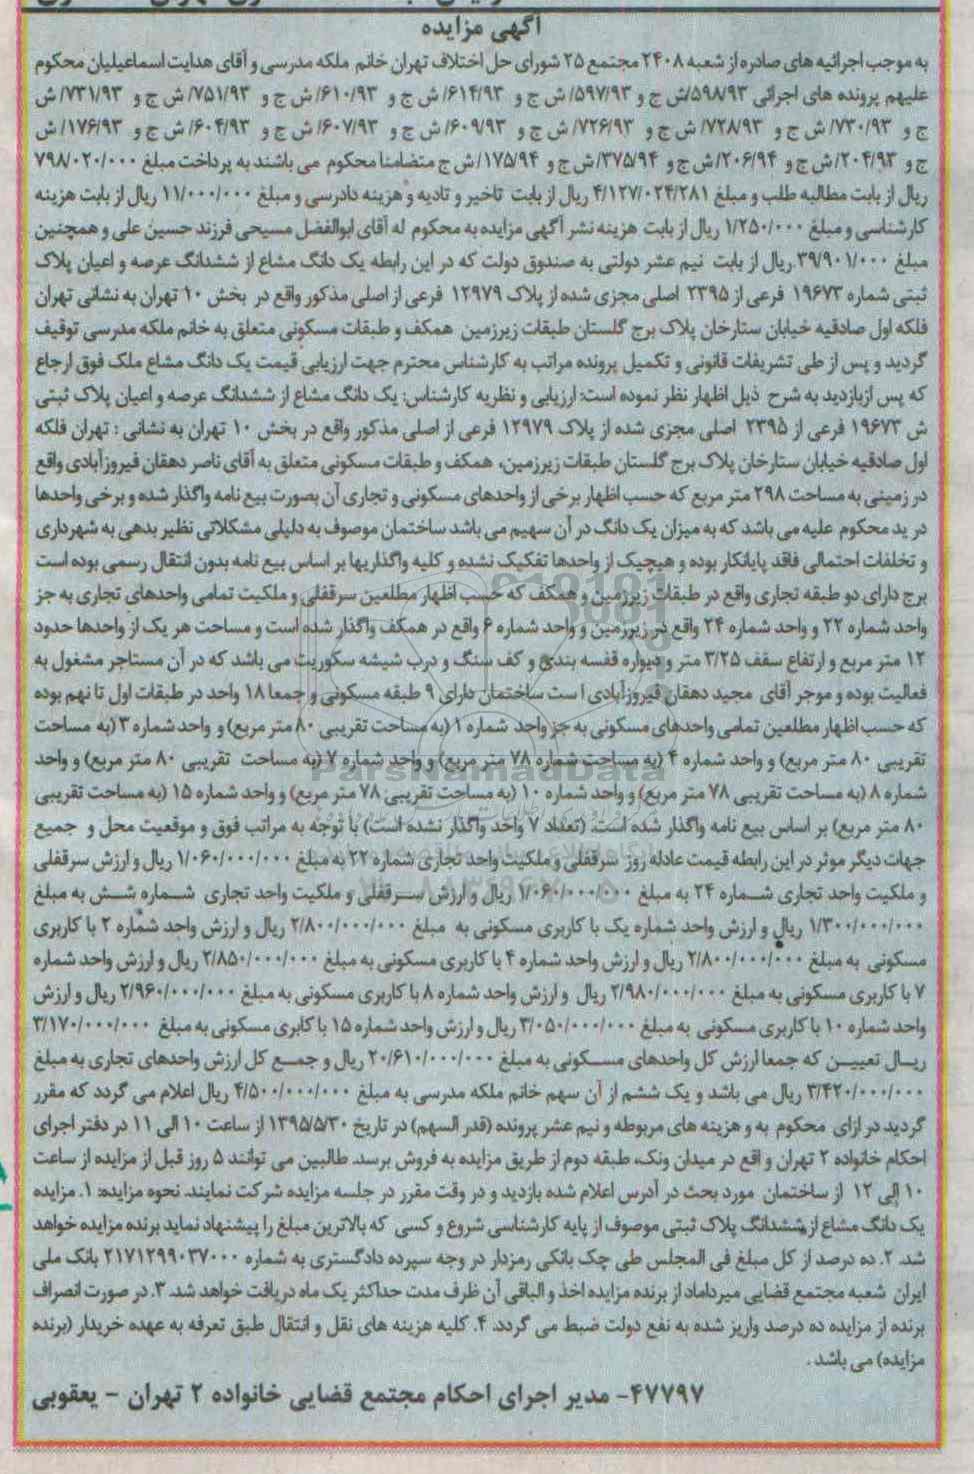 آگهی مزایده
به موجب اجرائیه های صادره از شعبه ۲۴۰۸ مجتمع ۲۵ شورای حل اختلاف تهران خانم ملکه مدرسی و آقای هدایت اسماعیلیان محکوم
علیهم پرونده های اجرائی ۵۹۸/۹۳/ش ج و ۵۹۷/۹۳/ ش ج و ۶۱۴/۹۳/ ش ج و ۶۱۰/۹۳/ ش ج و ۷۵۱/۹۳/ ش ج و ۷۳۱/۹۳/ ش
ج و ۷۳۰/۹۳/ ش ج و ۷۲۸/۹۳/ ش ج و ۷۲۶/۹۳/ ش ج و ۶۰۹/۹۳/ ش ج و ۶۰۷/۹۳/ ش ج و ۶۰۴/۹۳/ ش ج و ۱۷۶/۹۳/ ش
ج و ۲۰۴/۹۳/ ش ج و ۲۰۶/۹۴/ ش ج و ۳۷۵/۹۴/ش ج و ۱۷۵/۹۴/ ش ج متضامنا محکوم می باشند به پرداخت مبلغ ۷۹۸/۰۲۰/۰۰۰
ریال از بابت مطالبه طلب و مبلغ ۴/۱۲۷/۰۲۴/۲۸۱ ریال از بابت تاخیر و تادیه و هزینه دادرسی و مبلغ ۱۱/۰۰۰/۰۰۰ ریال از بابت هزینه
کارشناسی و مبلغ ۱/۲۵۰/۰۰۰ ریال از بابت هزینه نشر آگهی مزایده به محکوم له آقای ابوالفضل مسیحی فرزند حسین علی و همچنین
مبلغ ۳۹/۹۰۱/۰۰۰.ریال از بابت نیم عشر دولتی به صندوق دولت که در این رابطه یک دانگ مشاع از ششدانگ عرصه و اعیان پلاک
ثبتی شماره ۱۹۶۷۳ فرعی از ۲۳۹۵ اصلی مجزی شده از پلاک ۱۲۹۷۹ فرعی از اصلی مذکور واقع در بخش ۱۰ تهران به نشانی تهران
فلکه اول صادقیه خیابان ستارخان پلاک برج گلستان طبقات زیرزمین همکف و طبقات مسکونی متعلق به خانم ملکه مدرسی توقیف
گردید و پس از طی تشریفات قانونی و تکمیل پرونده مراتب به کارشناس محترم جهت ارزیابی قیمت یک دانگ مشاع ملک فوق ارجاع
که پس ازبازدید به شرح ذیل اظهار نظر نموده است: ارزیابی و نظریه کارشناس: یک دانگ مشاع از ششدانگ عرصه و اعیان پلاک ثبتی
ش ۱۹۶۷۳ فرعی از ۲۳۹۵ اصلی مجزی شده از پلاک ۱۲۹۷۹ فرعی از اصلی مذکور واقع در بخش ۱۰ تهران به نشانی : تهران فلکه
اول صادقیه خیابان ستارخان پلاک برج گلستان طبقات زیرزمین، همکف و طبقات مسکونی متعلق به آقای ناصر دهقان فیروزآبادی واقع
در زمینی به مساحت ۲۹۸ متر مربع که حسب اظهار برخی از واحدهای مسکونی و تجاری آن بصورت بیع نامه واگذار شده و برخی واحدها
در ید محکوم علیه می باشد که به میزان یک دانگ در آن سهیم می باشد ساختمان موصوف به دلیلی مشکلاتی نظیر بدهی به شهرداری
و تخلفات احتمالی فاقد پایانکار بوده و هیچیک از واحدها تفکیک نشده و کلیه واگذاریها بر اساس بیع نامه بدون انتقال رسمی بوده است
برج دارای دو طبقه تجاری واقع در طبقات زیرزمین و همکف که حسب اظهار مطلعین سرقفلی و ملکیت تمامی واحدهای تجاری به جز
واحد شماره ۲۲ و واحد شماره ۲۴ واقع در زیرزمین و واحد شماره ۶ واقع در همکف واگذار شده است و مساحت هر یک از واحدها حدود
۱۲ متر مربع و ارتفاع سقف ۳/۲۵ متر و دیواره قفسه بندی و کف سنگ و درب شیشه سکوریت می باشد که در آن مستاجر مشغول به
فعالیت بوده و موجر آقای مجید دهقان فیروزآبادی ا ست ساختمان دارای ۹ طبقه مسکونی و جمعا ۱۸ واحد در طبقات اول تا نهم بوده
که حسب اظهار مطلعین تمامی واحدهای مسکونی به جز واحد شماره ۱ (به مساحت تقریبی ۸۰ متر مربع) و واحد شماره ۳ (به مساحت
تقریبی ۸۰ متر مربع) و واحد شماره ۴ (به مساحت شماره ۷۸ متر مربع) و واحد شماره ۷ (به مساحت تقریبی ۸۰ متر مربع) و واحد
شماره ۸ (به مساحت تقریبی ۷۸ متر مربع) و واحد شماره ۱۰ (به مساحت تقریبی ۷۸ متر مربع) و واحد شماره ۱۵ (به مساحت تقریبی
۸۰ متر مربع) بر اساس بیع نامه واگذار شده است. (تعداد ۷ واحد واگذار نشده است) با توجه به مراتب فوق و موقعیت محل و جمیع
جهات دیگر موثر در این رابطه قیمت عادله روز سرقفلی و ملکیت واحد تجاری شماره ۲۲ به مبلغ ۱/۰۶۰/۰۰۰/۰۰۰ ریال و ارزش سرقفلی
و ملکیت واحد تجاری شماره ۲۴ به مبلغ ۱/۰۶۰/۰۰۰/۰۰۰ ریال و ارزش سرقفلی و ملکیت واحد تجاری شماره شش به مبلغ
۱/۳۰۰/۰۰۰/۰۰۰ ریال و ارزش واحد شماره یک با کاربری مسکونی به مبلغ ۲/۸۰۰/۰۰۰/۰۰۰ ریال و ارزش واحد شماره ۲ با کاربری
مسکونی به مبلغ ۲/۸۰۰/۰۰۰/۰۰۰ ریال و ارزش واحد شماره ۴ با کاربری مسکونی به مبلغ ۲/۸۵۰/۰۰۰/۰۰۰ ریال و ارزش واحد شماره
۷ با کاربری مسکونی به مبلغ ۲/۹۸۰/۰۰۰/۰۰۰ ریال و ارزش واحد شماره ۸ با کاربری مسکونی به مبلغ ۲/۹۶۰/۰۰۰/۰۰۰ ریال و ارزش
واحد شماره ۱۰ با کاربری مسکونی به مبلغ ۳/۰۵۰/۰۰۰/۰۰۰ ریال و ارزش واحد شماره ۱۵ با کابری مسکونی به مبلغ ۳/۱۷۰/۰۰۰/۰۰۰
ریال تعیین که جمعا ارزش کل واحدهای مسکونی به مبلغ ۲۰/۶۱۰/۰۰۰/۰۰۰ ریال و جمع کل ارزش واحدهای تجاری به مبلغ
۳/۴۲۰/۰۰۰/۰۰۰ ریال می باشد و یک ششم از آن سهم خانم ملکه مدرسی به مبلغ ۴/۵۰۰/۰۰۰/۰۰۰ ریال اعلام می گردد که مقرر
گردید در ازای محکوم به و هزینه های مربوطه و نیم عشر پرونده (قدر السهم) در تاریخ ۱۳۹۵/۵/۳۰ از ساعت ۱۰ الی ۱۱ در دفتر اجرای
احکام خانواده ۲ تهران و اقع در میدان ونک، طبقه دوم از طریق مزایده به فروش برسد. طالبین می توانند ۵ روز قبل از مزایده از ساعت
۱۰ الی ۱۲ از ساختمان مورد بحث در آدرس اعلام شده بازدید و در وقت مقرر در جلسه مزایده شرکت نمایند. نحوه مزایده: ۱. مزایده
یک دانگ مشاع از ششدانگ پلاک ثبتی موصوف از پایه کارشناسی شروع و کسی که بالاترین مبلغ را پیشنهاد نماید برنده مزایده خواهد
شد. ۲. ده درصد از کل مبلغ فی المجلس طی چک بانکی رمزدار در وجه سپرده دادگستری به شماره ۲۱۷۱۲۹۹۰۳۷۰۰۰ بانک ملی
ایران شعبه مجتمع قضایی میرداماد از برنده مزایده اخذ و الباقی آن ظرف مدت حداکثر یک ماه دریافت خواهد شد. ۳. در صورت انصراف
برنده از مزایده ده درصد واریز شده به نفع دولت ضبط می گردد. ۴. کلیه هزینه های نقل و انتقال طبق تعرفه به عهده خریدار (برنده
مزایده) می باشد.
۴۷۷۹۷- مدیر اجرای احکام مجتمع قضایی خانواده ۲ تهران - یعقوبی
ParsNamadData